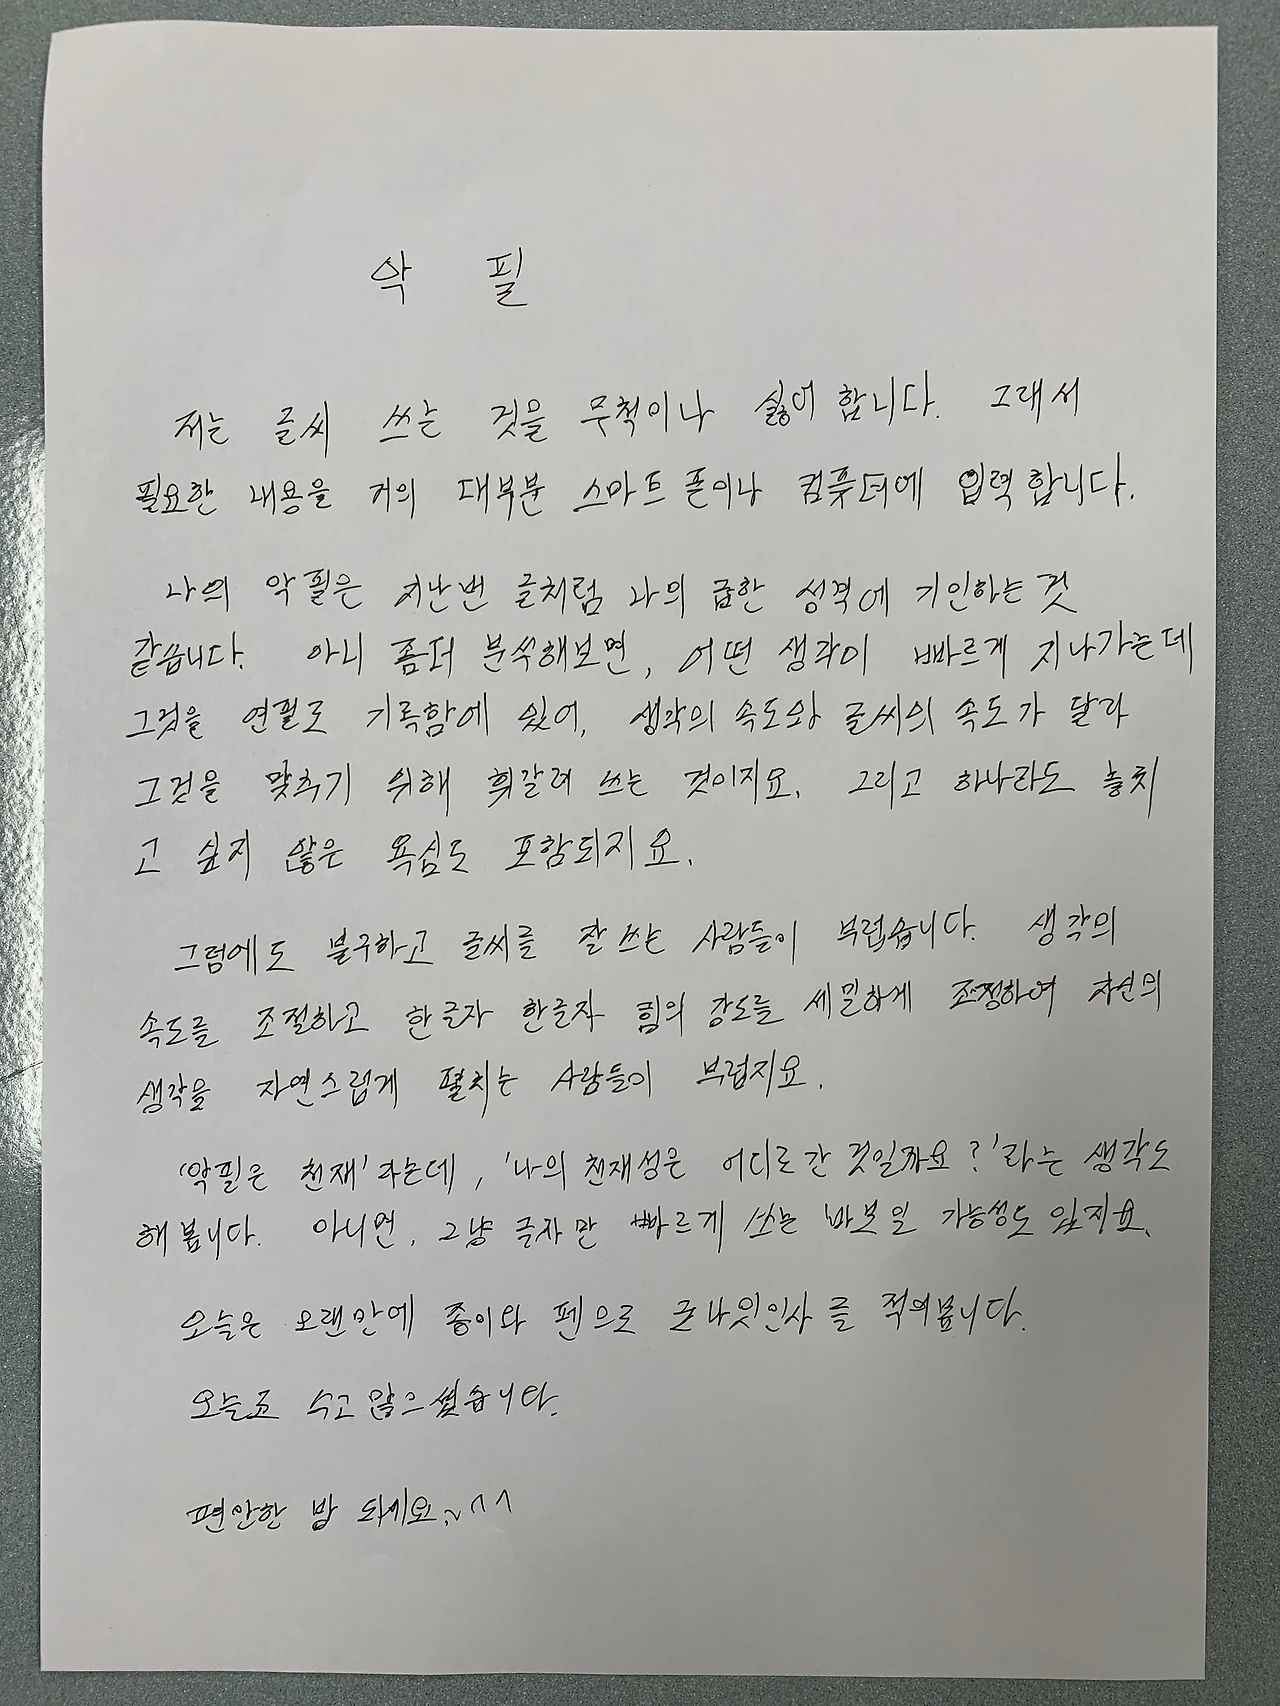 악 필
저는 글씨 쓰는 것을 무척이나 싫어 합니다. 그래서
필요한 내용을 거의 대부분 스마트폰이나 컴퓨터에 입력합니다.
나의 악필은 지난번 글처럼 나의 급한 성격에 기인하는 것
같습니다. 아니 좀더 분석해보면, 어떤 생각이 빠르게 지나가는데
그것을 연필로 기록함에 있어, 생각의 속도와 글씨의 속도가 달라
그것을 맞추기 위해 휘갈려 쓰는 것이지요. 그리고 하나라도 놓치
고 싶지 않은 욕심도 포함되지요.
그럼에도 불구하고 글씨를 잘 쓰는 사람들이 부럽습니다. 생각의
속도를 조절하고 한글자 한글자 힘의 강도를 세밀하게 조정하여 자신의
생각을 자연스럽게 펼치는 사람들이 부럽지요.
'악필은 천재'라는데, '나의 천재성은 어디로 간 것일까요?'라는 생각도
해 봅니다. 아니면, 그냥 글자만 빠르게 쓰는 바보일 가능성도 있지요.
오늘은 오랜만에 종이와 펜으로 굿나잇인사를 적어봅니다.
오늘도 수고 많으셨습니다.
편안한 밤 되세요~^^